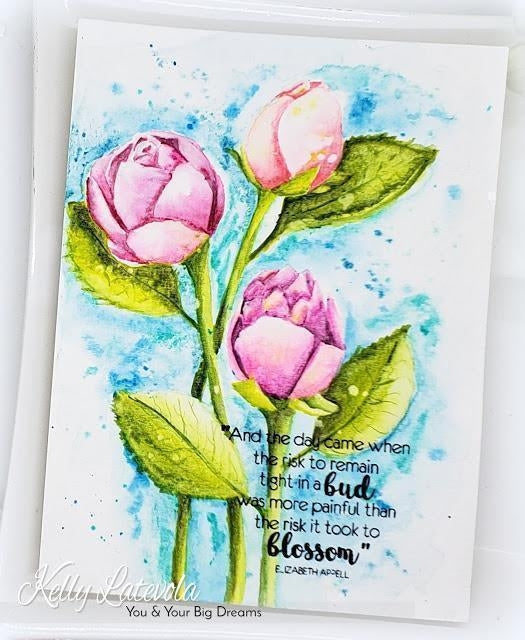 "And the day came when
the risk to remain
tight in a bud
was more painful than
the risk it took to
blossom"
ELIZABETH APPELL
Kelly Latevola
You & Your Big Dreams